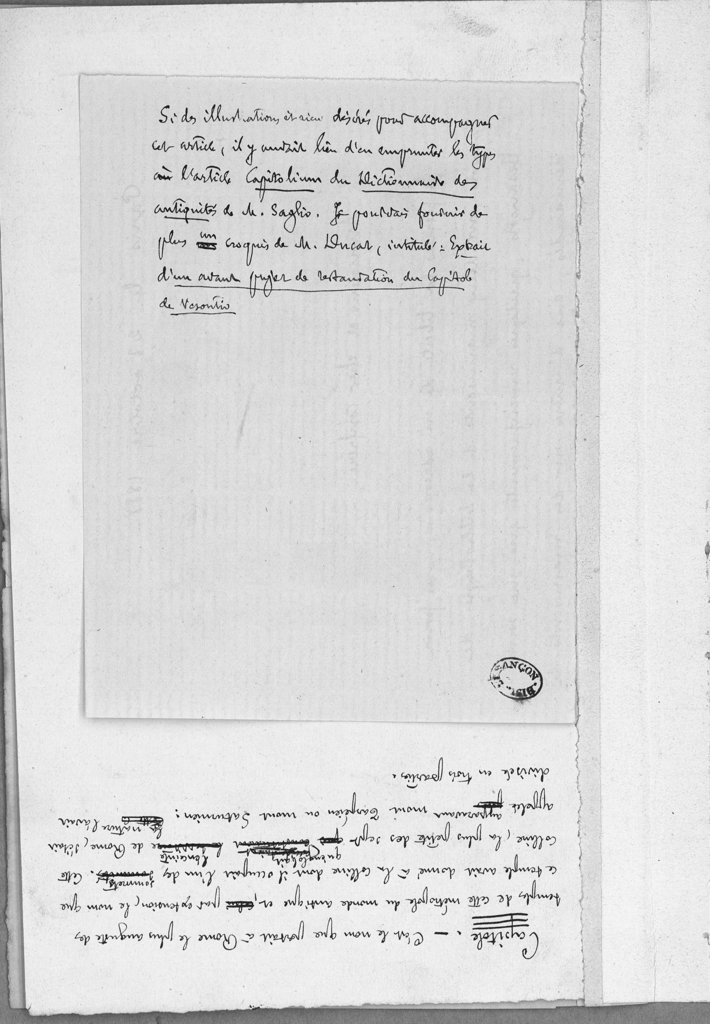 Si des illustrations étaient désirés pour accompagner
cet article, il y aurait lieu d'en emprunter les types
à l'article Capitolium du Dictionnaire des
antiquités de M. Saglio. Je pourrais fournir de
plus un croquis de M. Ducat, intitulé : Extrait
d'un avant projet de restauration du Capitole
de Vesontio
BESANÇON BIB
Capitole. — C'est le nom que portait à Rome le plus auguste des
temples de cette métropole du monde antique et, par extension, le nom que
ce temple avait donné à la colline dont il occupait l'un des sommets. Cette
colline, la plus petite des sept qu'englobait l'enceinte de Rome, s'était
appelée auparavant mont Tarpéien ou mont Saturnien : la nature l'avait
divisée en trois parties.